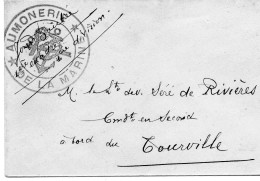 AUMONERIE
DE LA MARINE
M. le Lt de v. Séré de Rivières
Cmdt en Second
à bord du Tourville